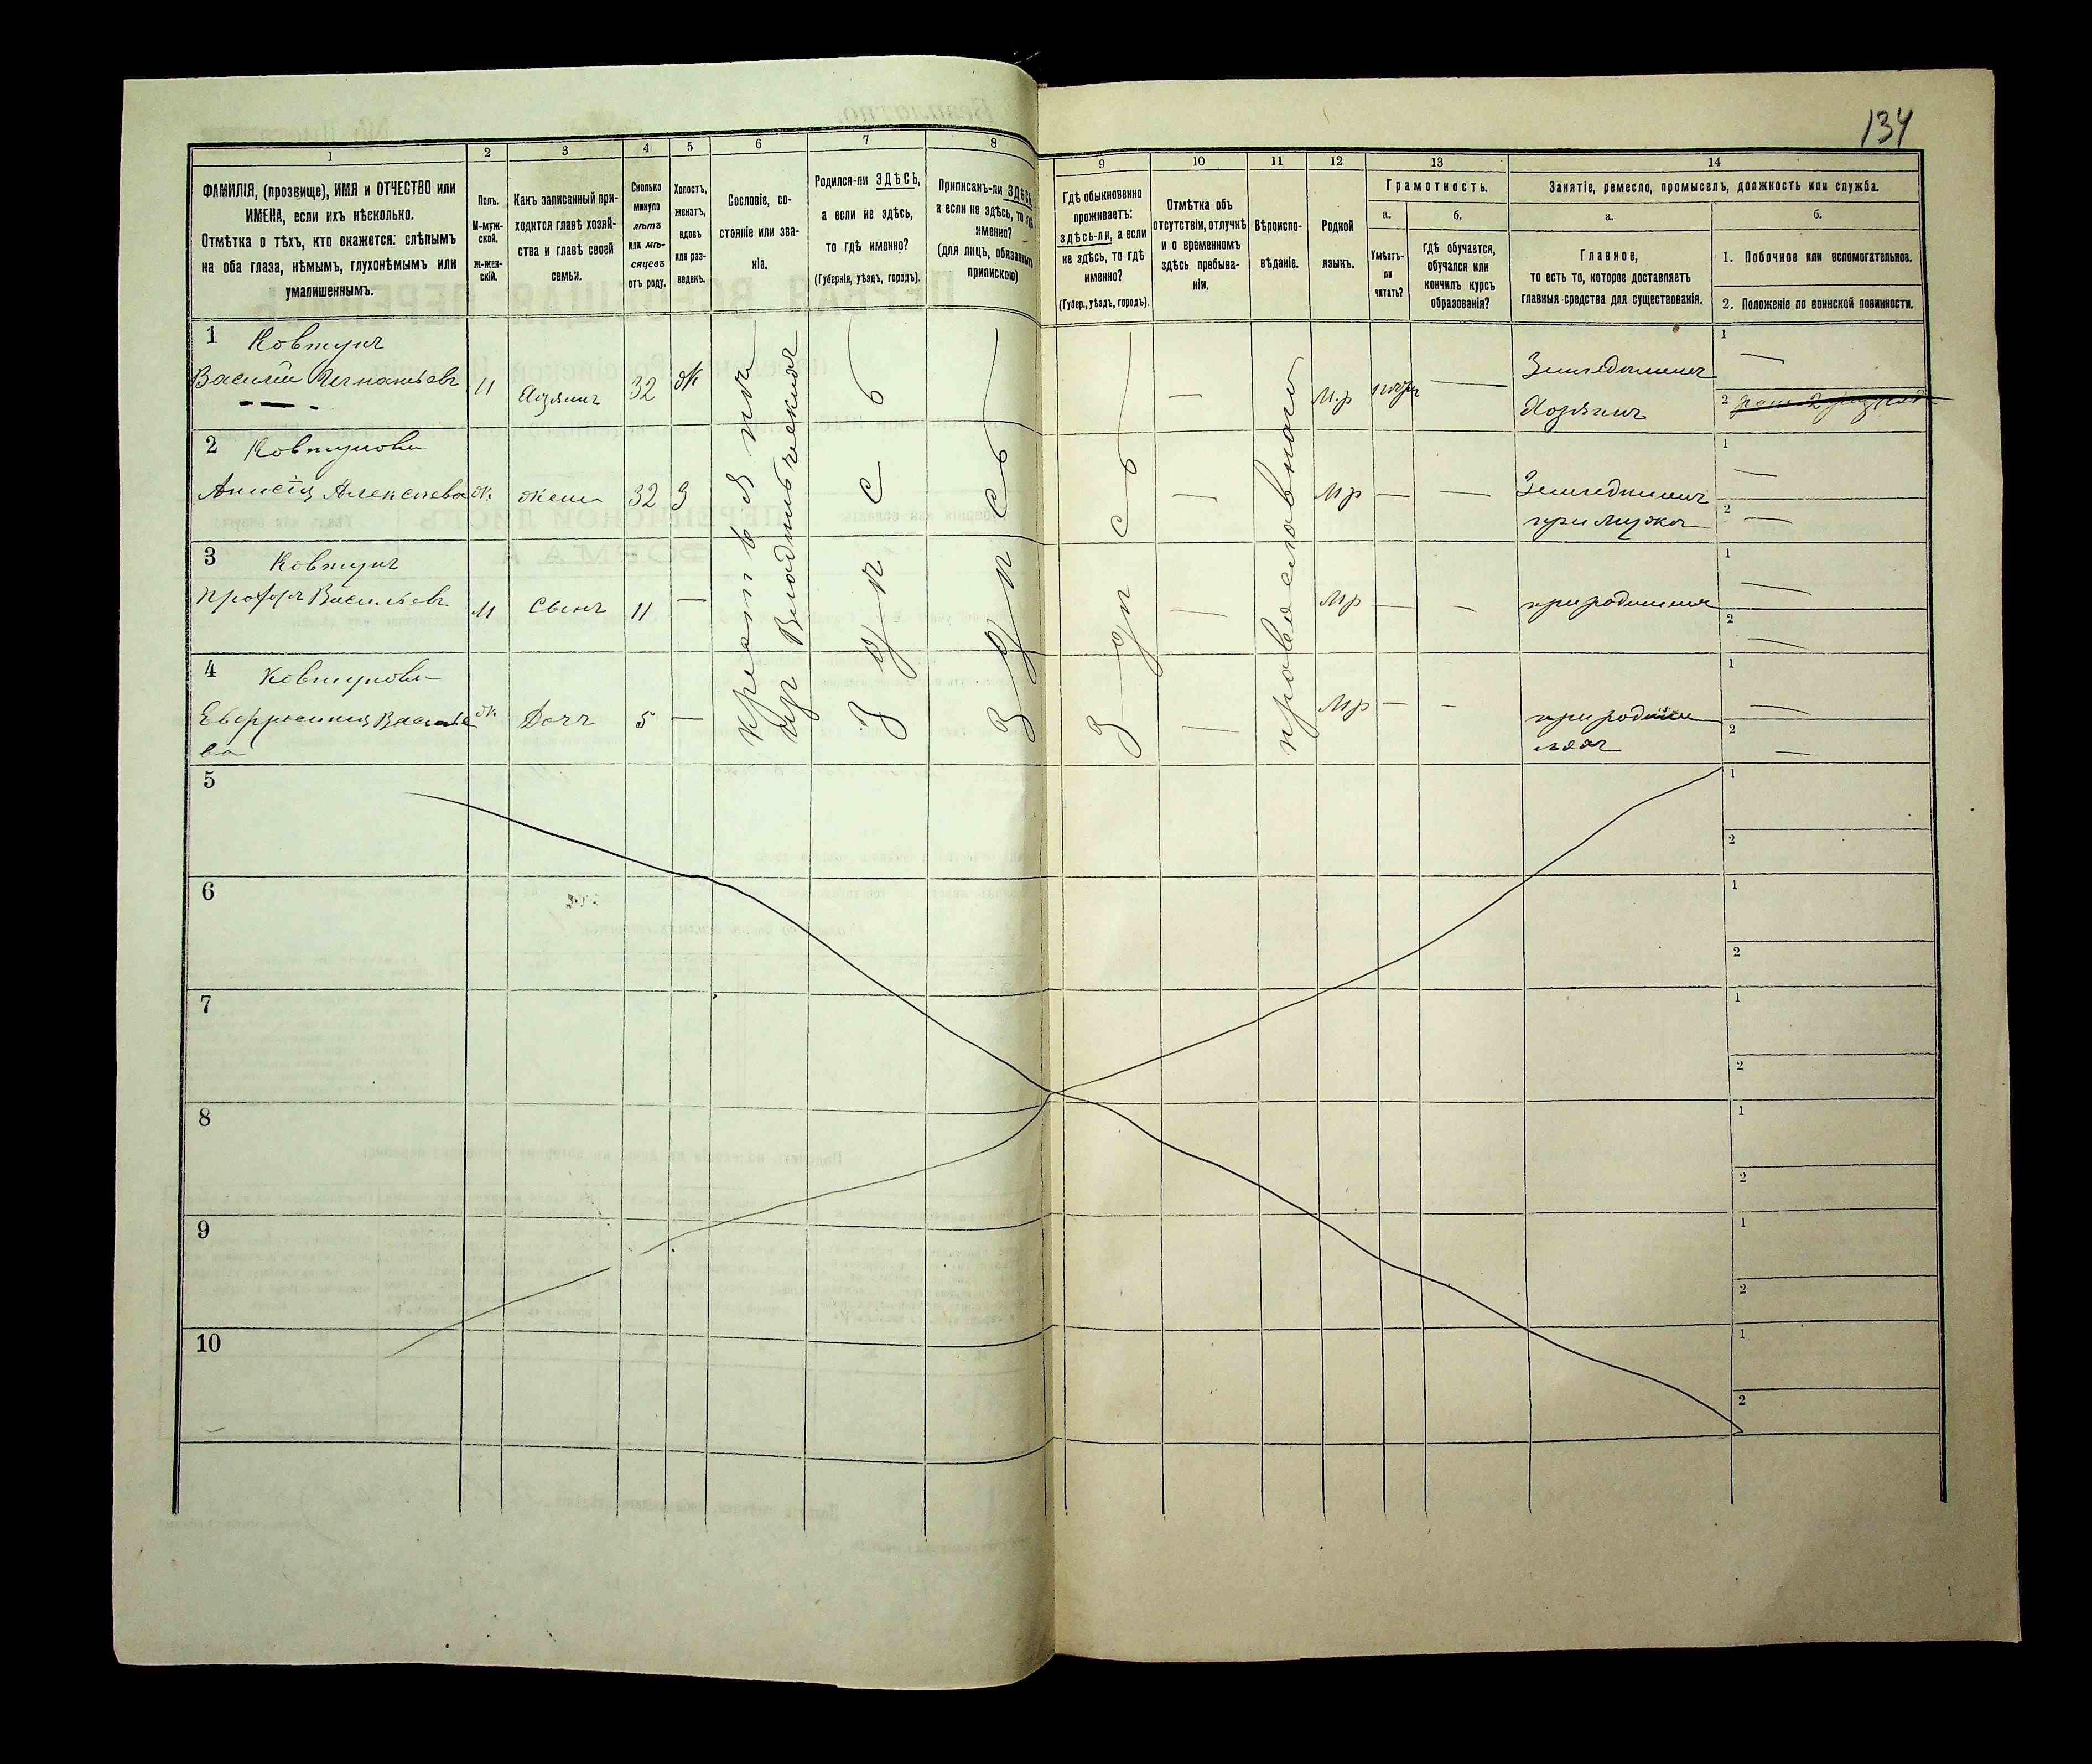 134
1
2
3
4
5
6
7
8
9
10
11
12
13
14
ФАМИЛІЯ, (прозвище), ИМЯ и ОТЧЕСТВО или
ИМЕНА, если ихъ нѣсколько.
Отмѣтка о тѣхъ, кто окажется: слѣпымъ
на оба глаза, нѣмымъ, глухонѣмымъ или
умалишеннымъ.
Полъ.
М-муж-
ской.
Ж-жен-
скій.
Какъ записанный при-
ходится главѣ хозяй-
ства и главѣ своей
семьи.
Сколько
минуло
лѣтъ
или мѣ-
сяцевъ
отъ роду.
Холостъ,
женатъ,
вдовъ
или раз-
веденъ.
Сословіе, со-
стояніе или зва-
ніе.
Родился-ли ЗДѢСЬ,
а если не здѣсь,
то гдѣ именно?
(Губернія, уѣздъ, городъ).
Приписанъ-ли ЗДѢСЬ,
а если не здѣсь, то гдѣ
именно?
(для лицъ, обязанныхъ
припискою)
Гдѣ обыкновенно
проживаетъ:
здѣсь-ли, а если
не здѣсь, то гдѣ
именно?
(Губер., уѣздъ, городъ).
Отмѣтка объ
отсутствіи, отлучкѣ
и о временномъ
здѣсь пребыва-
ніи.
Вѣроиспо-
вѣданіе.
Родной
языкъ.
Грамотность.
а.
Умѣетъ-
ли
читать?
б.
гдѣ обучается,
обучался или
кончилъ курсъ
образованія?
Занятіе, ремесло, промыселъ, должность или служба.
а.
Главное,
то есть то, которое доставляетъ
главныя средства для существованія.
б.
1. Побочное или вспомогательное.
2. Положеніе по воинской повинности.
1 Ковтунъ
Василій Игнатьевъ М Хозяинъ 32 Ж М.р
Земледѣлецъ
Хозяинъ
1
2
2 Ковтунова
Анисія Алексѣева Ж. Жена 32 З М.р
при мужѣ
1
2
3 Ковтунъ
Прохоръ Васильевъ М Сынъ 11 М.р при родителяхъ
1
2
4 Ковтунова
Евфросинія Василье Ж. Дочь 5 М.р при родите
ва ляхъ
1
2
крестья
Здѣсь
Здѣсь
Здѣсь
православнаго
5
1
2
6
1
2
7
1
2
8
1
2
9
1
2
10
1
2